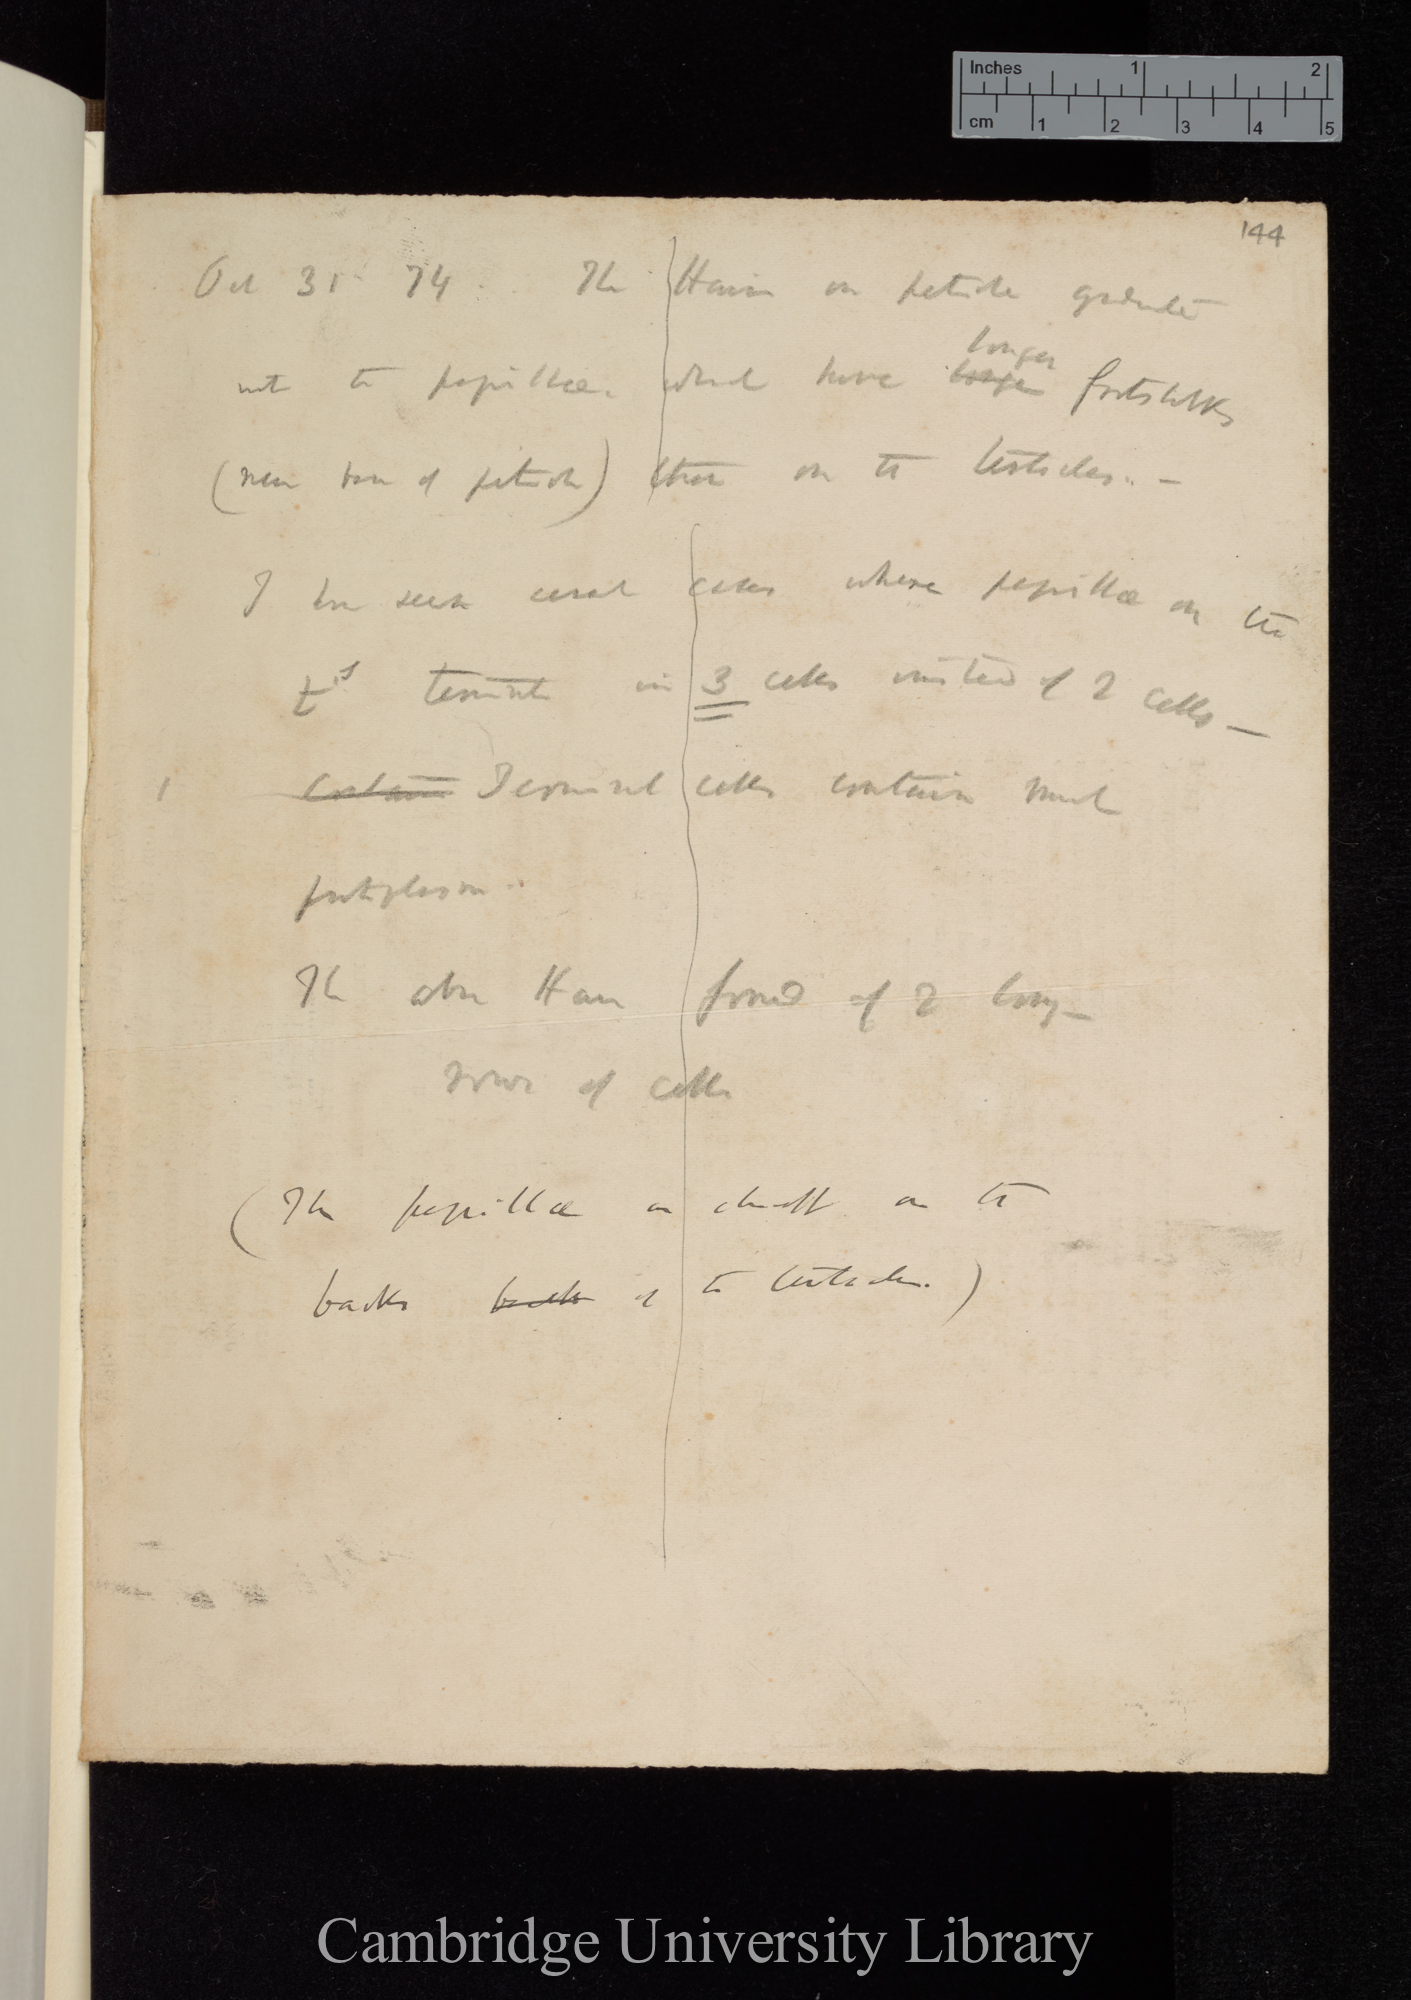 Inches 1 2
cm 1 2 3 4 5
144
Oct 31 74. The Hairs on petiole graduate
into the papillæ. which have longer
longer footstalks
(near base of petiole) than on the tentacles. —
I have seen several cases where papillæ on the
terminate in 3 cells instead of 2 cells —
1 contain Terminal cells contain much
protoplasm.
The above Hairs formed of 2 long
rows of cells
(The papillæ are absent on the
backs backs of the tentacles.)
Cambridge University Library